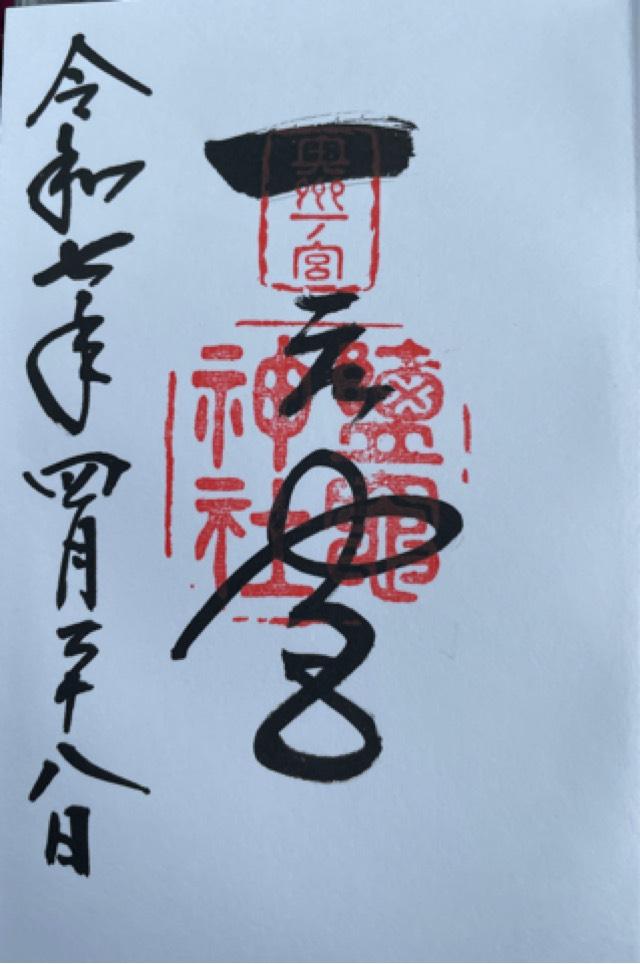 一之宮
奥州一ノ宮
鹽竈神社
令和七年四月二十八日